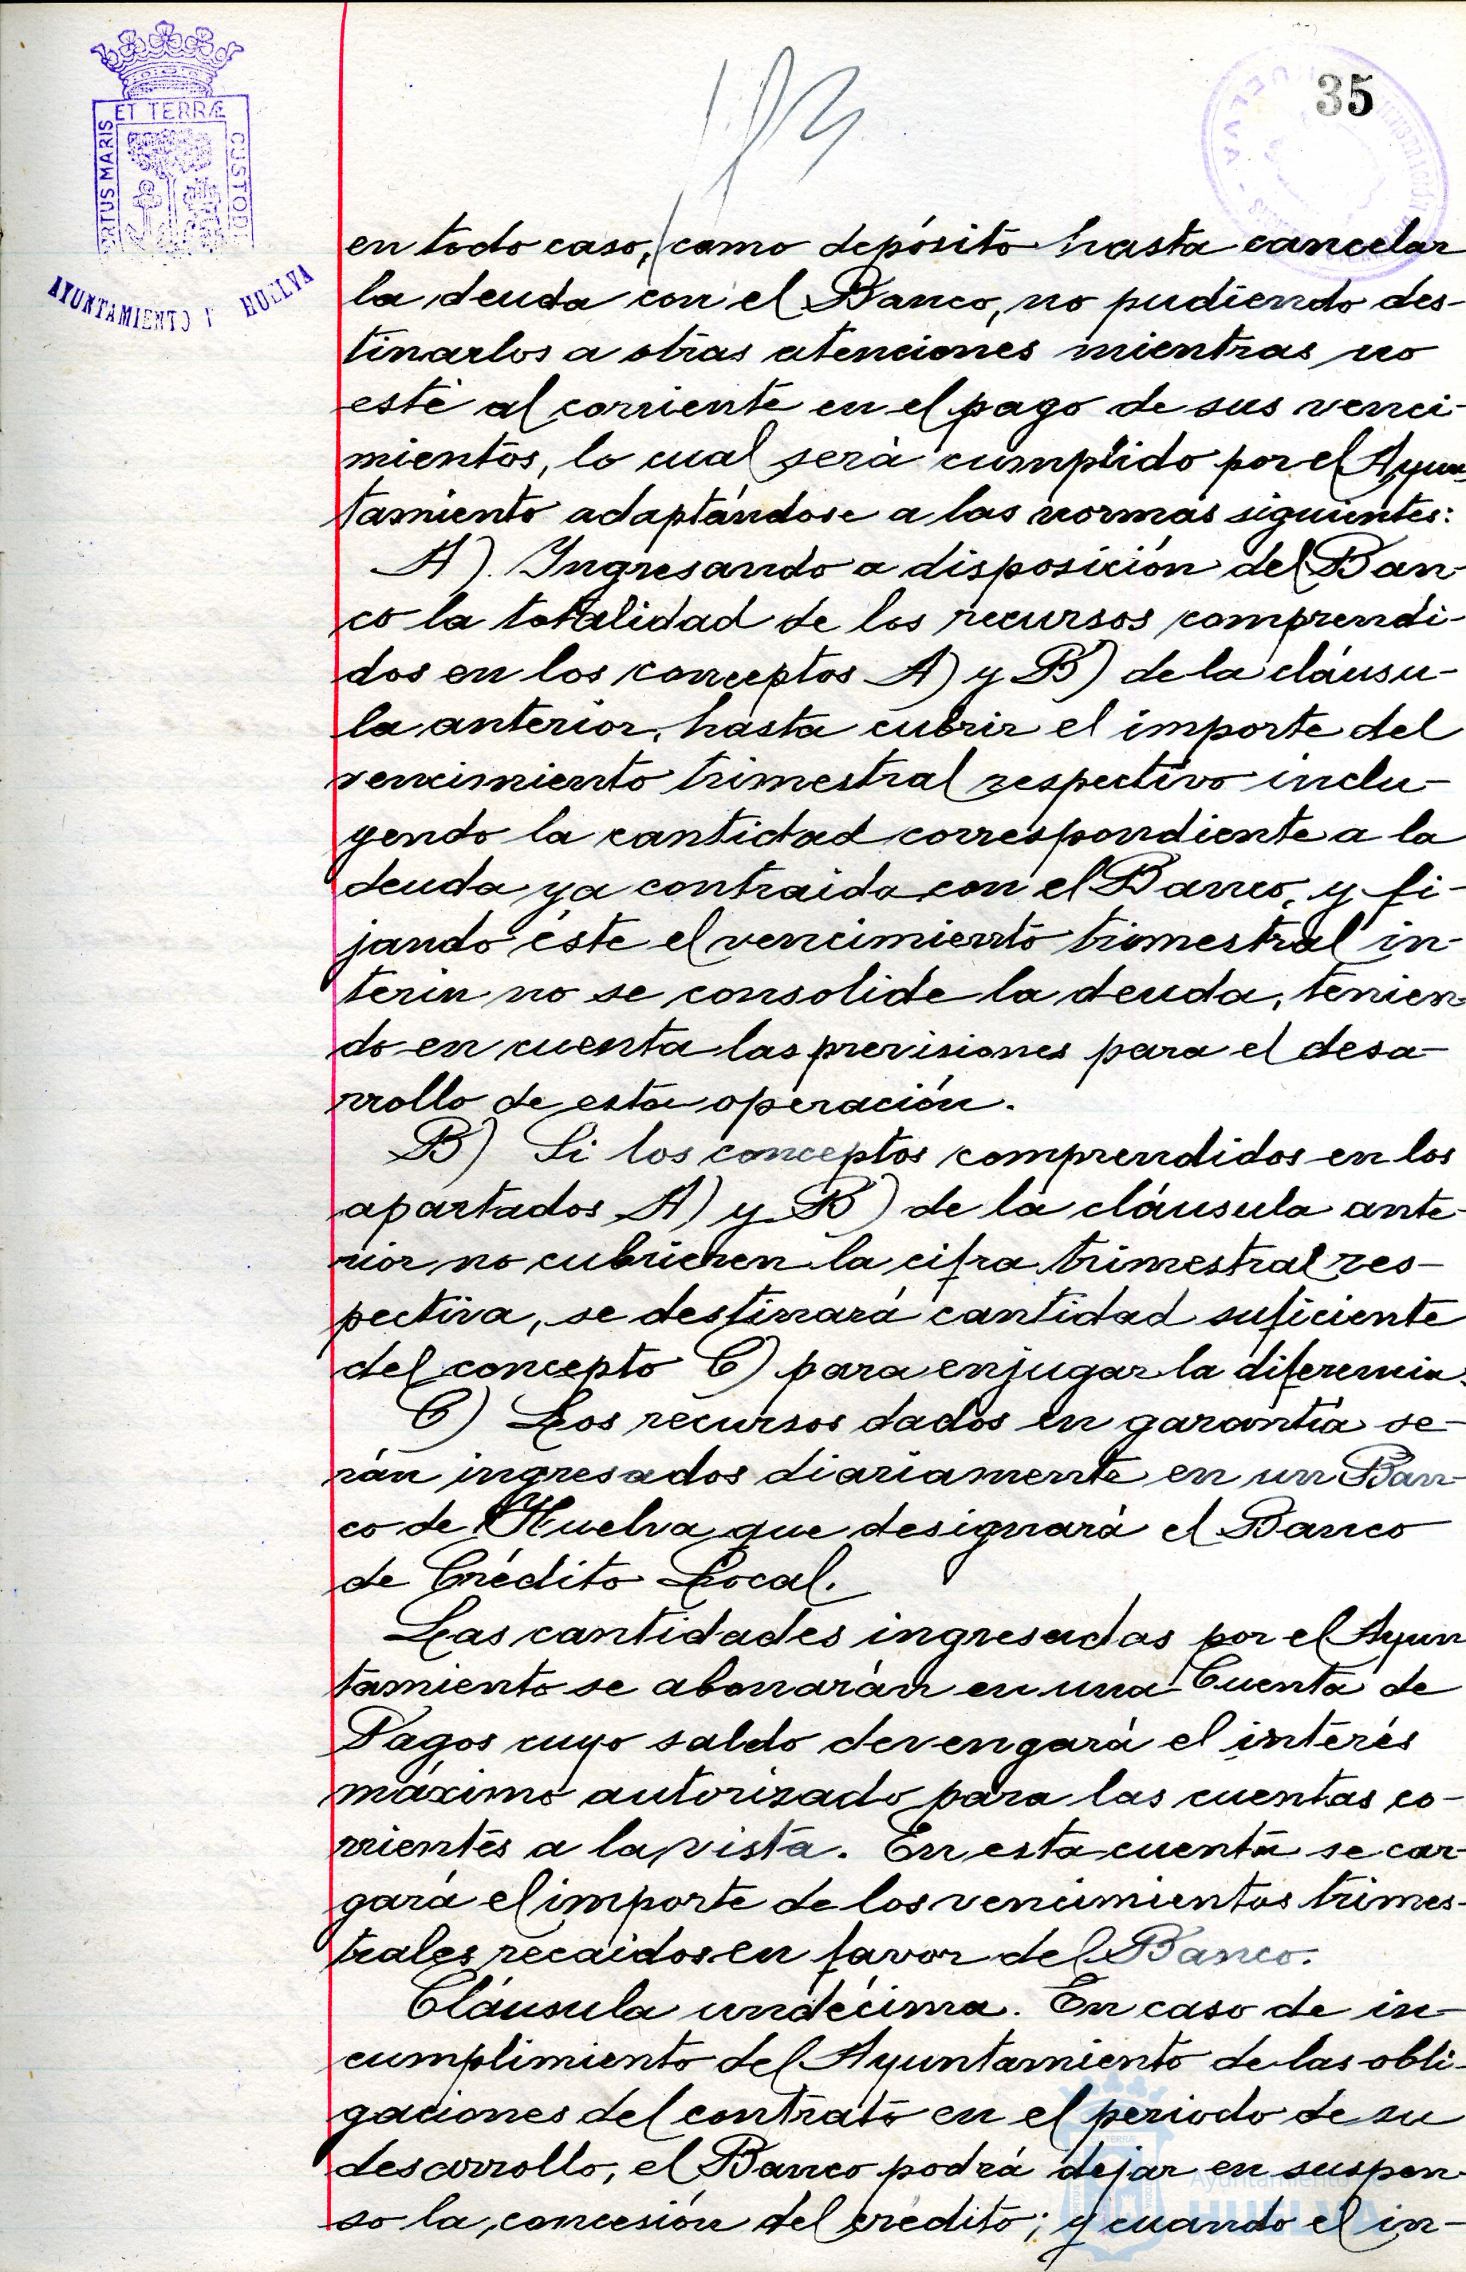 35
ET TERRÆ
PORTUS MARIS
CUSTODI
AYUNTAMIENTO HUELVA
en todo caso, como depósito hasta cancelar
la deuda con el Banco, no pudiendo des-
tinarlos a otras atenciones mientras no
esté al corriente en el pago de sus venci-
mientos, lo cual será cumplido por el Ayun-
tamiento adaptándose a las normas siguientes:
A). Ingresando a disposición del Ban-
co la totalidad de los recursos comprendi-
dos en los conceptos A) y B) de la cláusu-
la anterior, hasta cubrir el importe del
vencimiento trimestral respectivo inclu-
yendo la cantidad correspondiente a la
deuda ya contraida con el Banco, y fi-
jando éste el vencimiento trimestral in-
terin no se consolide la deuda, tenien-
do en cuenta las previsiones para el desa-
rrollo de esta operación.
B) Si los conceptos comprendidos en los
apartados A) y B) de la cláusula ante-
rior no cubrieren la cifra trimestral res-
pectiva, se destinará cantidad suficiente
del concepto C) para enjugar la diferencia.
C) Los recursos dados en garantía se-
rán ingresados diariamente en un Ban-
co de Huelva que designará el Banco
de Crédito Local.
Las cantidades ingresadas por el Ayun
tamiento se abonarán en una Cuenta de
Pagos cuyo saldo devengará el interés
máximo autorizado para las cuentas co-
rrientes a la vista. En esta cuenta se car-
gará el importe de los vencimientos trimes-
trales recaidos en favor del Banco.
Cláusula undécima. En caso de in-
cumplimiento del Ayuntamiento de las obli-
gaciones del contrato en el periodo de su
desarrollo, el Banco podrá dejar en suspen-
so la concesión del crédito; y cuando el in-
Ayuntamiento de
HUELVA